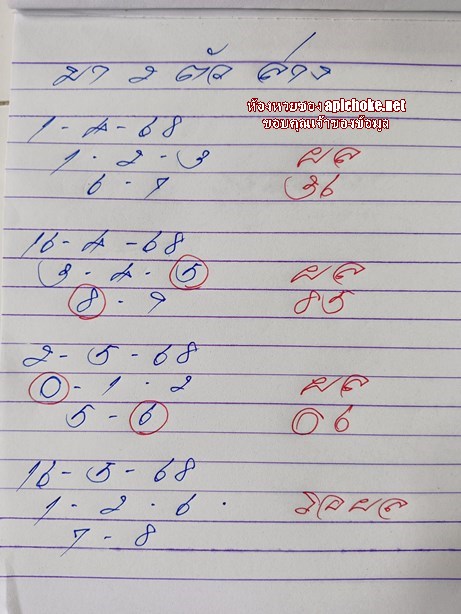 มา 2 ตัว ล่าง
ห้องหวยของ apichoke.net
ขอบคุณเจ้าของข้อมูล
1 - 4 - 68
1 - 2 - 3 ผล
6 - 7 36
16 - 4 - 68
3 - 4 - 5 ผล
8 - 9 85
2 - 5 - 68
0 - 1 - 2 ผล
5 - 6 06
16 - 5 - 68
1 - 2 - 6 - รอผล
7 - 8